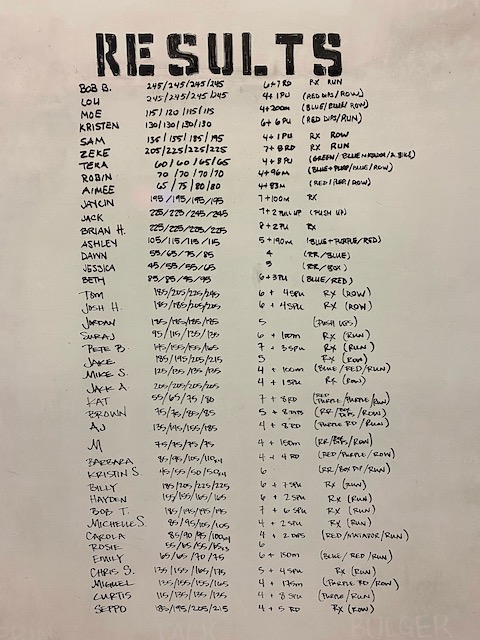 RESULTS
BOB B. 245/245/245/245 6+7RD RX RUN
LOU 245/245/245/245 4+1PU (RED DIPS/ROW)
MOE 115/120/115/115 4+200m (BLUE/BLUE/ROW)
KRISTEN 130/130/130/130 6+6PU (RED DIPS/RUN)
SAM 135/155/185/195 4+1PU RX ROW
ZEKE 205/225/225/225 7+8RD RX RUN
TERA 60/60/65/65 4+8PU
ROBIN 70/70/70/70 4+96m
AIMEE 65/75/80/80 4+83m (RED/PURP/ROW)
JAYLIN 195/195/195/195 7+100m RX
JACK 225/225/245/245 7+2 PULL UP (PUSH UP)
BRIAN H. 225/225/225/225 8+2PU RX
ASHLEY 105/115/115/115 5+190m (BLUE+PURPLE/RED)
DAWN 55/65/75/85 4 (RR/BLUE)
JESSICA 45/55/55/65 5 (RR/BOX)
BETH 85/85/95/95 6+3PU (BLUE/RED)
TOM 185/205/225/245 6+45PU RX (ROW)
JOSH H. 185/185/205/205 6+45PU RX (ROW)
JORDAN 185/185/185/185 5
SURAJ 95/115/135/135 6+100m RX (RUN)
PETE B. 145/155/155/165 7+3SPU RX (RUN)
JAKE 185/195/205/215 5 RX (ROW)
MIKE S. 125/135/135/135 4+100m (BLUE/RED/RUN)
JACK A. 205/205/205/205 4+15PU RX (ROW)
KAT 55/65/75/80 7+8RD
BROWN 75/75/85/85 5+8
AJ 135/145/155/185 4+8RD (PURPLE RD/RUN)
M 75/75/75/75 4+150m
BARBARA 85/95/105/110 4+4RD (RED/PURPLE/ROW)
KRISTIN S. 45/55/50/50 6 (RR/BOX DIP/RUN)
BILLY 185/205/225/225 6+7SPU RX (RUN)
HAYDEN 155/155/165/165 6+2SPU RX (RUN)
BOB T. 185/195/195/195 7+6SPU RX (RUN)
MICHELLE S. 85/95/105/105 4+2SPU RX (RUN)
CAROLA 85/90/95/100 4+2 DIPS (RED/AVIATOR/RUN)
ROSIE 55/65/55/65 6
EMILY 65/65/70/75 6+150m (BLUE/RED/RUN)
CHRIS S. 135/155/165/175 5+4SPU RX (RUN)
MIGUEL 135/155/155/165 4+175m (PURPLE RD/ROW)
CURTIS 115/135/135/135 4+8SPU (PURPLE/RUN)
SEPPO 185/195/205/215 4+5RD RX (ROW)